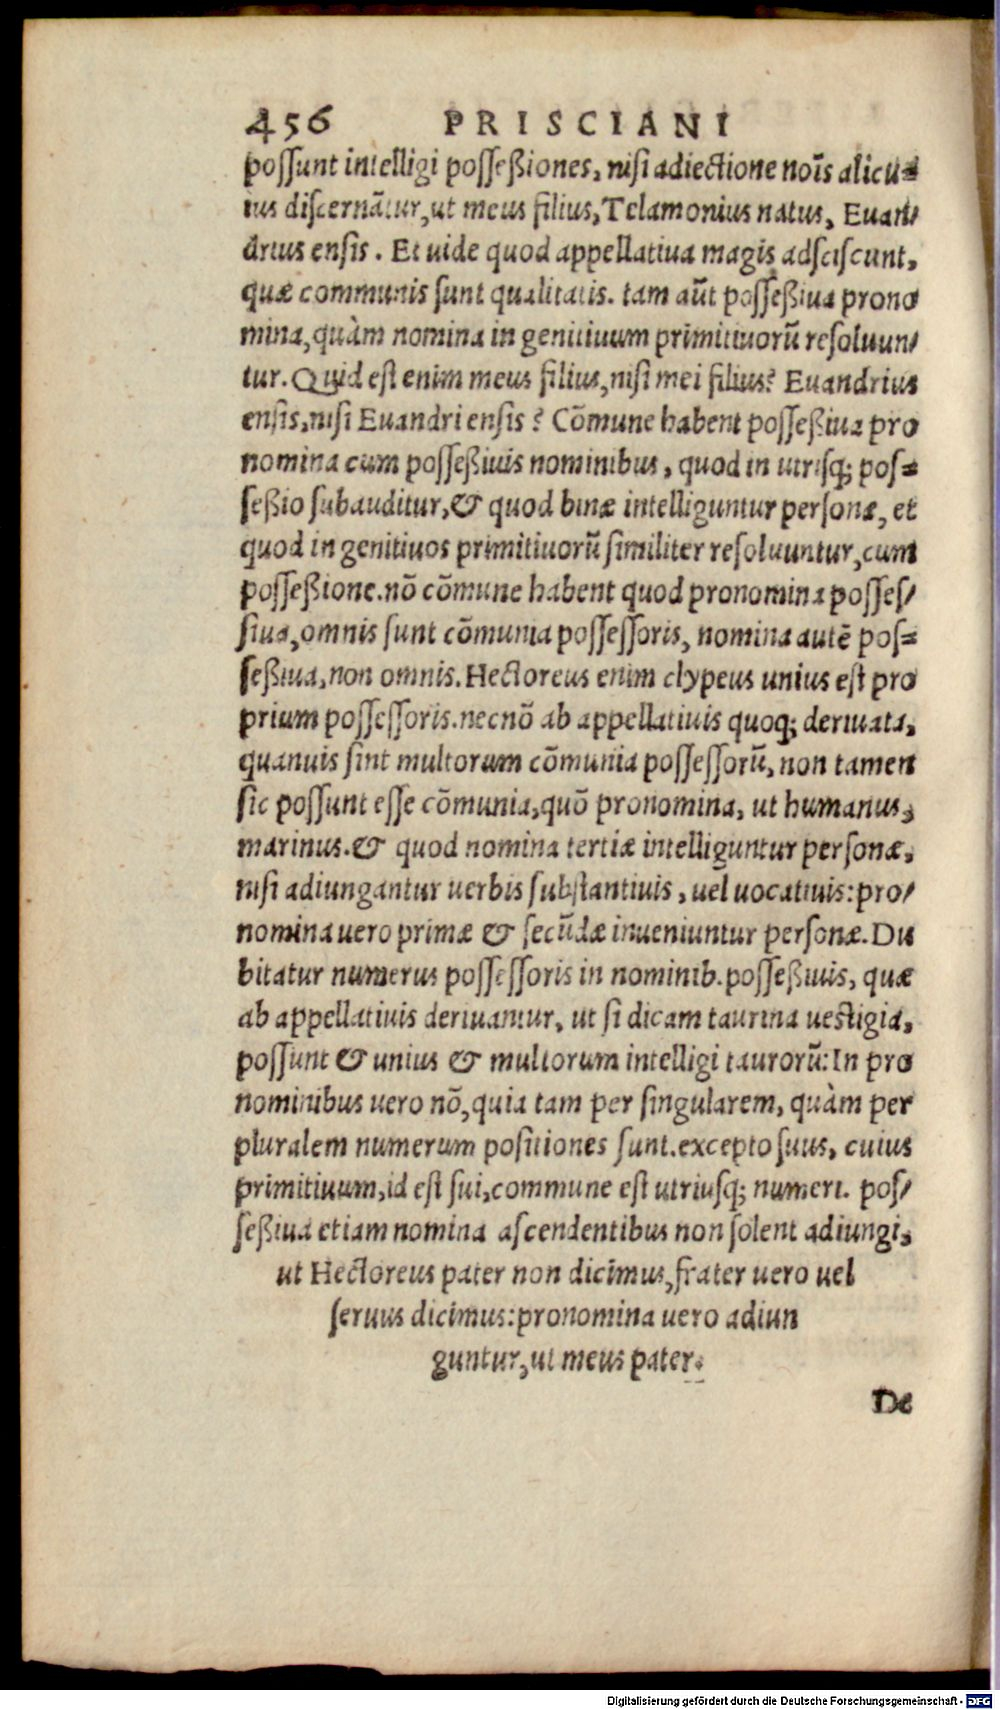 456 PRISCIANI
possunt intelligi posseßiones, nisi adiectione noīs alicu=
ius discernātur, ut meus filius, Telamonius natus, Euan/
drius ensis. Et uide quod appellatiua magis adsciscunt,
quæ communis sunt qualitatis. tam aūt posseßiua prono
mina, quàm nomina in genitiuum primitiuorū resoluun/
tur. Quid est enim meus filius, nisi mei filius? Euandrius
ensis, nisi Euandri ensis? Cōmune habent posseßiua pro
nomina cum posseßiuis nominibus, quod in utrisq; pos=
seßio subauditur, & quod binæ intelliguntur personæ, et
quod in genitiuos primitiuorū similiter resoluuntur, cum
posseßione. nō cōmune habent quod pronomina posses/
siua, omnis sunt cōmunia possessoris, nomina autē pos=
seßiua, non omnis. Hectoreus enim clypeus unius est pro
prium possessoris. necnō ab appellatiuis quoq; deriuata,
quanuis sint multorum cōmunia possessorū, non tamen
sic possunt esse cōmunia, quō pronomina, ut humanus,
marinus. & quod nomina tertiæ intelliguntur personæ,
nisi adiungantur uerbis substantiuis, uel uocatiuis: pro/
nomina uero primæ & secūdæ inueniuntur personæ. Du
bitatur numerus possessoris in nominib. posseßiuis, quæ
ab appellatiuis deriuantur, ut si dicam taurina uestigia,
possunt & unius & multorum intelligi taurorū: In pro
nominibus uero nō, quia tam per singularem, quàm per
pluralem numerum positiones sunt. excepto suus, cuius
primitiuum, id est sui, commune est utriusq; numeri. pos/
seßiua etiam nomina ascendentibus non solent adiungi,
ut Hectoreus pater non dicimus, frater uero uel
seruus dicimus: pronomina uero adiun
guntur, ut meus pater.
De
Digitalisierung gefördert durch die Deutsche Forschungsgemeinschaft - DFG